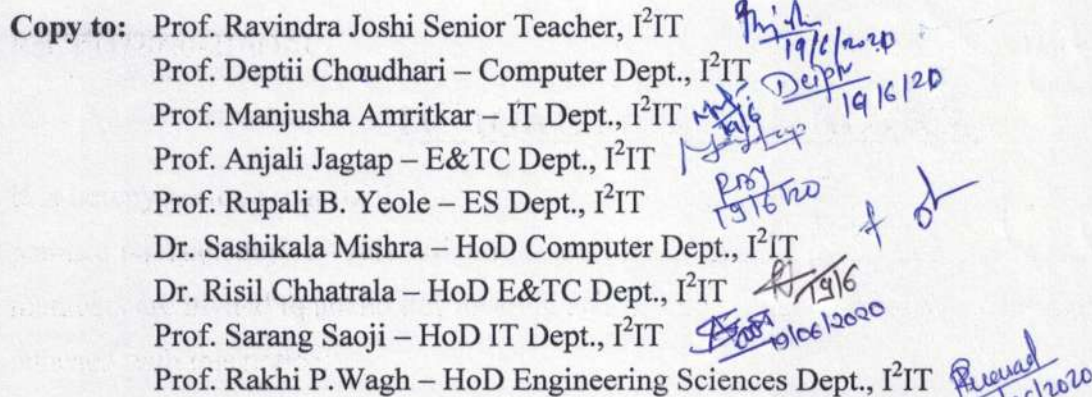 Copy to: Prof. Ravindra Joshi Senior Teacher, I²IT
19/6/2020
Prof. Deptii Choudhari – Computer Dept., I²IT
19/6/20
Prof. Manjusha Amritkar – IT Dept., I²IT
19/6
Prof. Anjali Jagtap – E&TC Dept., I²IT
Prof. Rupali B. Yeole – ES Dept., I²IT
RBY
19/6/20
Dr. Sashikala Mishra – HoD Computer Dept., I²IT
Dr. Risil Chhatrala – HoD E&TC Dept., I²IT
19/6
Prof. Sarang Saoji – HoD IT Dept., I²IT
19/06/2020
Prof. Rakhi P.Wagh – HoD Engineering Sciences Dept., I²IT